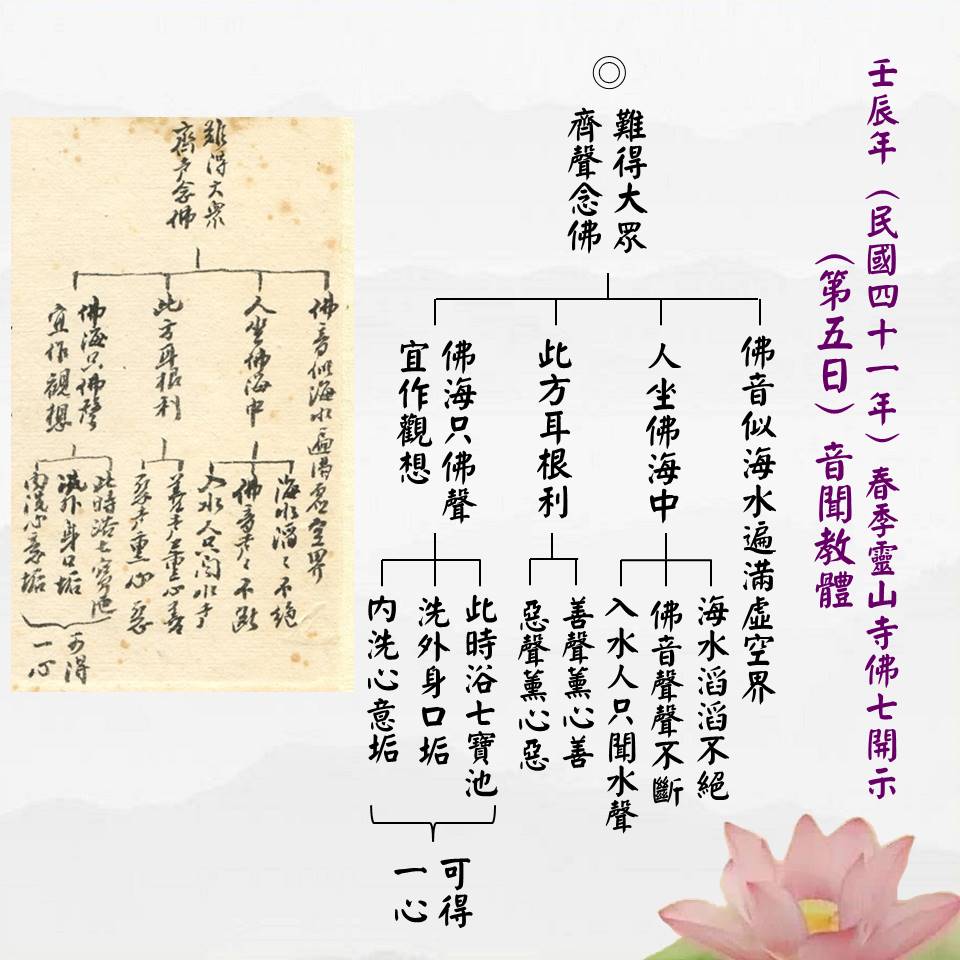 壬辰年（民國四十一年）春季靈山寺佛七開示
（第五日）音聞教體
◎
難得大眾
齊聲念佛
佛音似海水遍滿虛空界
人坐佛海中
海水滔滔不絕
佛音聲聲不斷
入水人只聞水聲
此方耳根利
善聲薰心善
惡聲薰心惡
佛海只佛聲
宜作觀想
此時浴七寶池
洗外身口垢
內洗心意垢
可得
一心
難得大眾
齊聲念佛
佛音似海水遍滿虛空界
人坐佛海中
海水滔々不絕
佛音聲々不斷
入水人只聞水聲
此方耳根利
善聲薰心善
惡聲薰心惡
佛海只佛聲
宜作觀想
此時浴七寶池
洗外身口垢
內洗心意垢
可得
一心